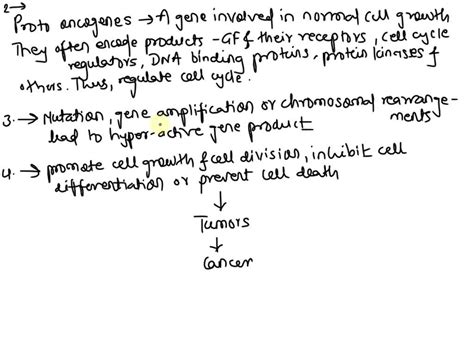 2→
Proto oncogenes → A gene involved in normal cell growth
They often encode products - GF & their receptors, cell cycle
regulators, DNA binding proteins, protein kinases &
others. Thus, regulate cell cycle.
3. → Mutation, gene amplification or chromosomal rearrange-
ments
lead to hyper-active gene product
4. → promote cell growth & cell division, inhibit cell
differentiation or prevent cell death
↓
Tumors
↓
Cancer